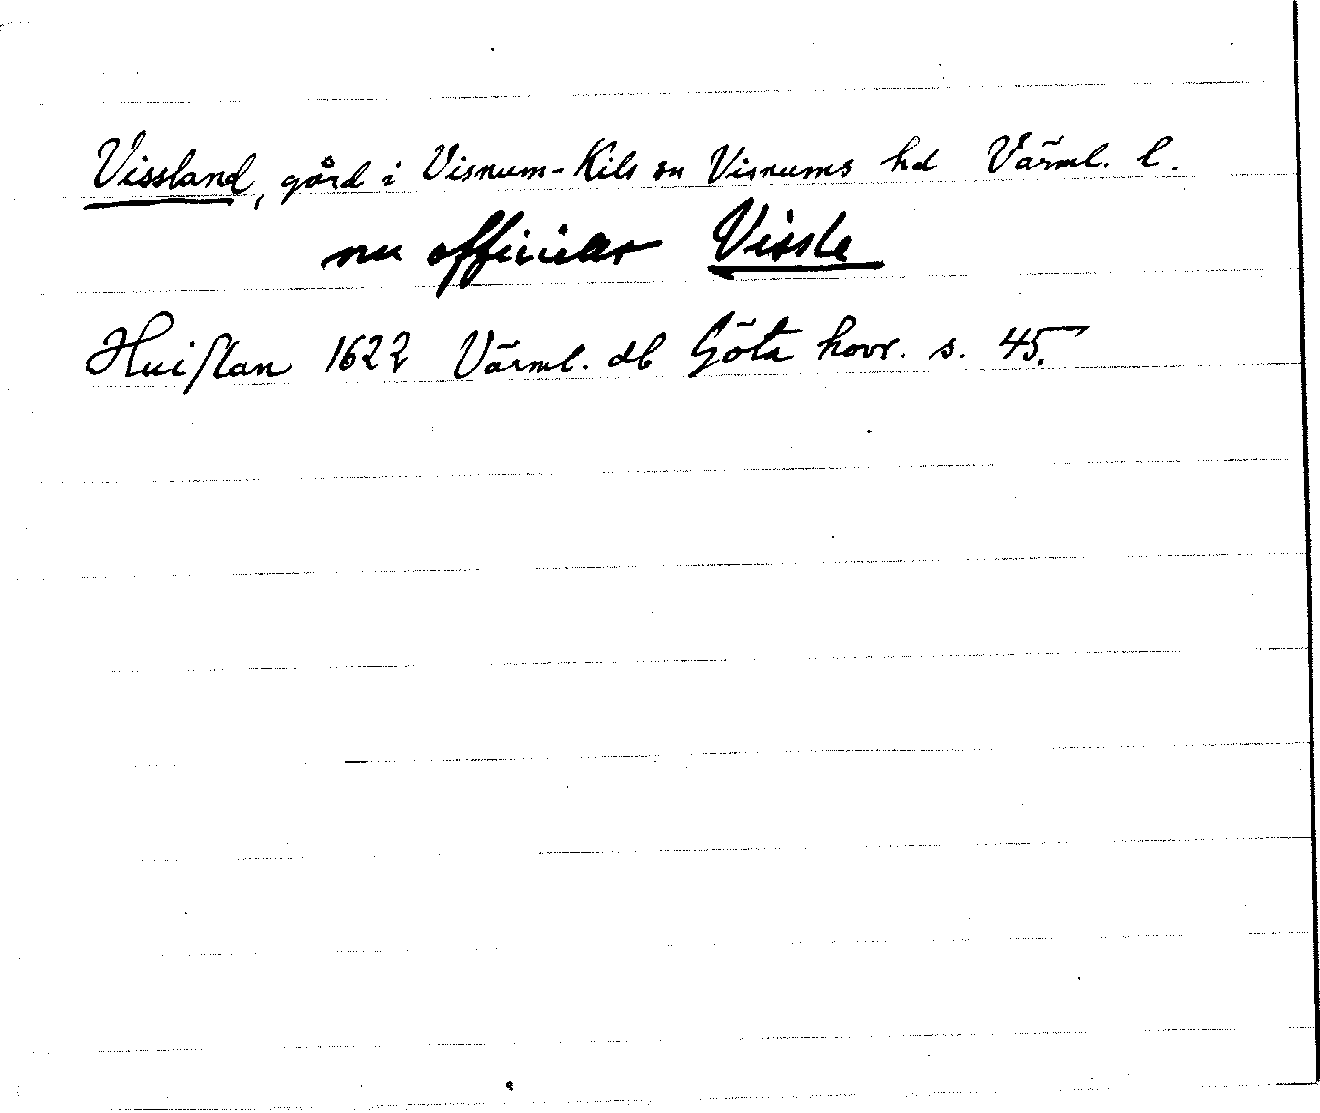 Vissland, gård i Visnum-Kils sn Visnums hd Värml. l.
nu officiellt Vissle
Huiſlan 1622 Värml. db Göta hovr. s. 45.